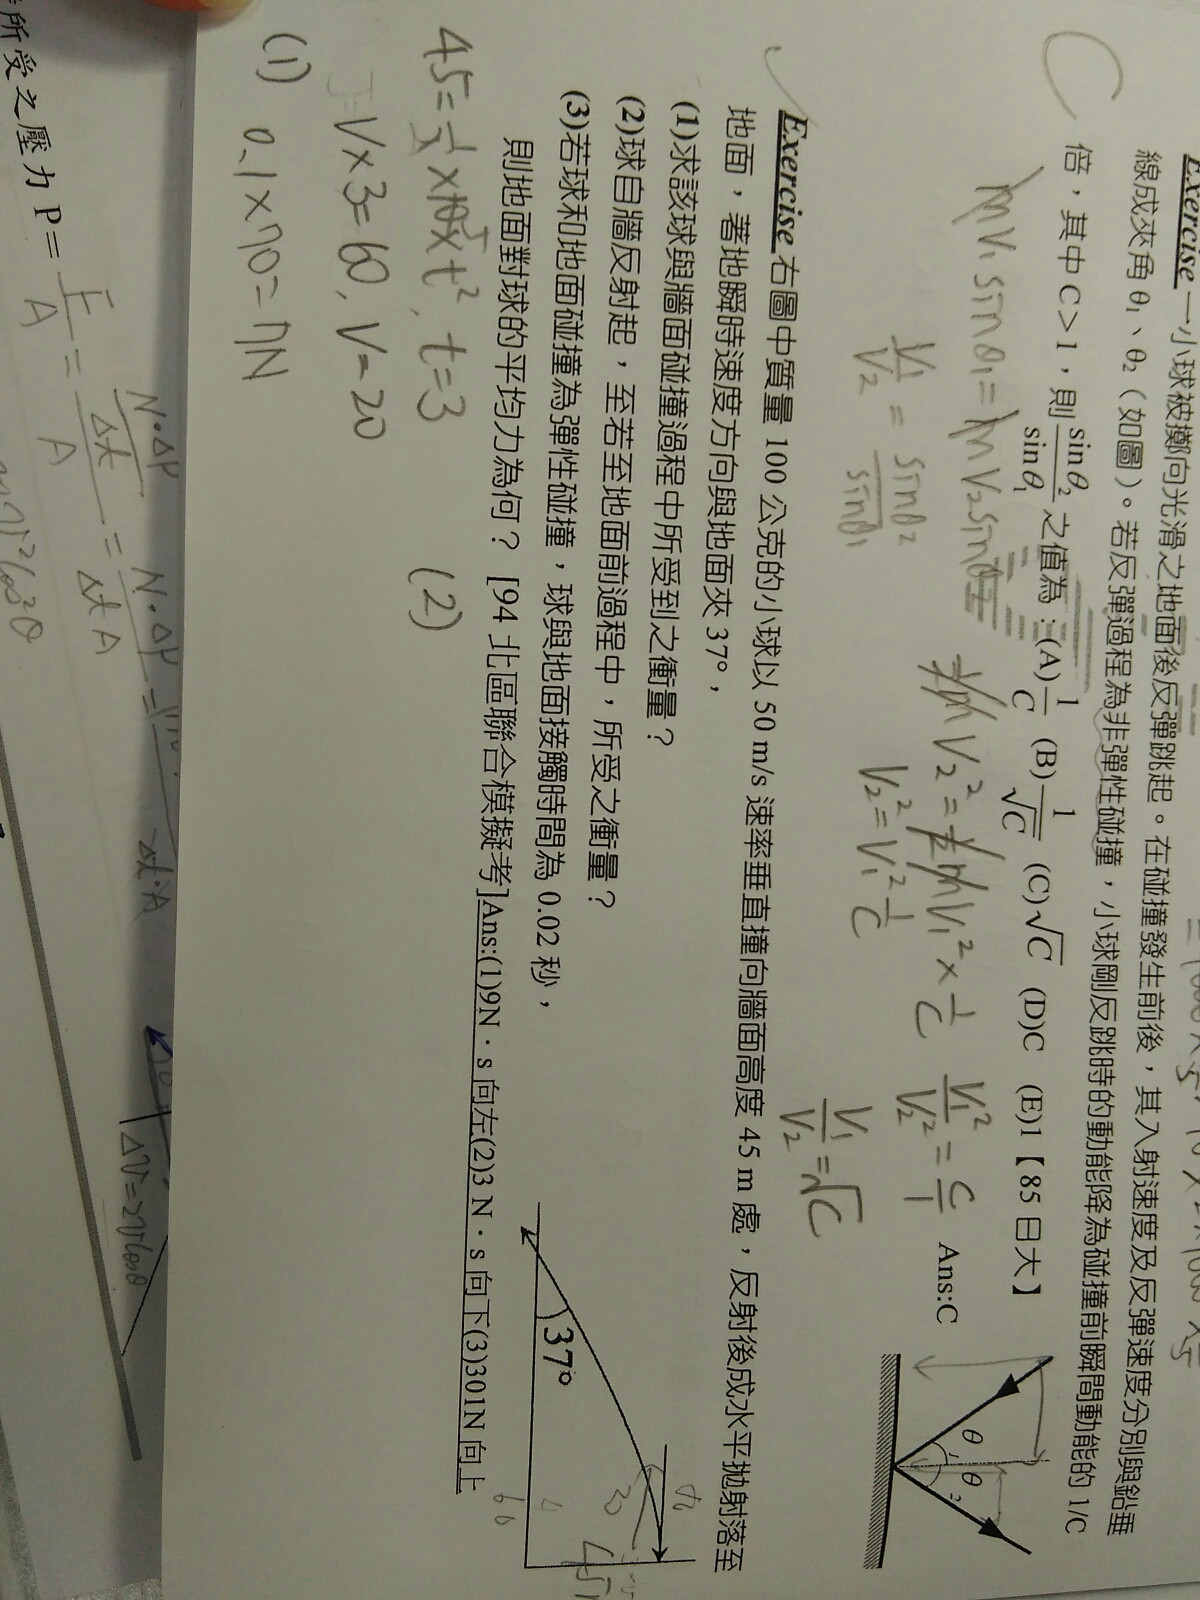 Exercise 一小球被擲向光滑之地面後反彈跳起。在碰撞發生前後，其入射速度及反彈速度分別與鉛垂
線成夾角 θ₁、θ₂（如圖）。若反彈過程為非彈性碰撞，小球剛反跳時的動能降為碰撞前瞬間動能的 1/C
倍，其中 C＞1，則 sinθ₂/sinθ₁ 之值為：(A) 1/C (B) 1/√C (C)√C (D)C (E)1【85 日大】
Ans:C
mV₁sinθ₁=mV₂sinθ₂
V₁/V₂ = sinθ₂/sinθ₁
½mV₂²=½mV₁²×1/C
V₂²=V₁² 1/C
V₁²/V₂²=C/1
V₁/V₂=√C
θ₁
θ₂
Exercise 右圖中質量 100 公克的小球以 50 m/s 速率垂直撞向牆面高度 45 m 處，反射後成水平拋射落至
地面，著地瞬時速度方向與地面夾 37°，
(1)求該球與牆面碰撞過程中所受到之衝量？
(2)球自牆反射起，至若至地面前過程中，所受之衝量？
(3)若球和地面碰撞為彈性碰撞，球與地面接觸時間為 0.02 秒，
則地面對球的平均力為何？ [94 北區聯合模擬考]Ans:(1)9N．s 向左(2)3 N．s 向下(3)301N 向上
37°
60
45=½×10×t², t=3
V×3=60, V=20
(1) 0.1×70=7N
(2)
所受之壓力 P= F/A = N·ΔP/Δt/A = N·ΔP/ΔtA =
Δt·A
ΔV=2Vcosθ